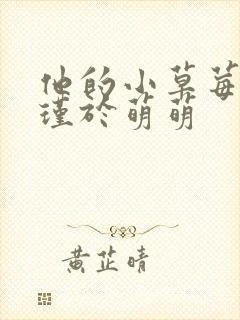 他的小草莓
瑾於萌萌
黄芷晴